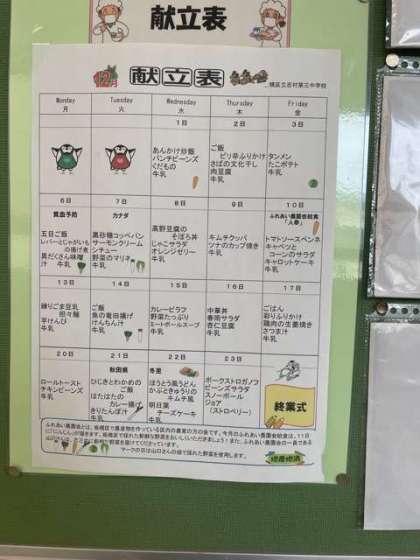 献立表
12月
献立表
板橋区立志村第三中学校
Monday
Tuesday
Wednesday
Thursday
Friday
月
火
水
木
金
1日
2日
3日
あんかけ炒飯
パンチビーンズ
くだもの
牛乳
ご飯
ピリ辛ふりかけ
さばの文化干し
肉豆腐
牛乳
タンメン
たこポテト
牛乳
6日
7日
8日
9日
10日
貧血予防
五目ご飯
レバーとじゃがいも
の揚げ煮
具だくさん味噌
汁
牛乳
カナダ
黒砂糖コッペパン
サーモンクリーム
シチュー
野菜のマリネ
牛乳
高野豆腐の
そぼろ丼
じゃこサラダ
オレンジゼリー
牛乳
キムチクッパ
ツナのカップ焼き
牛乳
ふれあい農園会給食
「人参」
トマトソースペンネ
キャベツと
コーンのサラダ
キャロットケーキ
牛乳
13日
14日
15日
16日
17日
練りごま豆乳
担々麺
芋けんぴ
牛乳
ご飯
魚の竜田揚げ
けんちん汁
牛乳
カレーピラフ
野菜たっぷり
ミートボールスープ
牛乳
中華丼
春雨サラダ
杏仁豆腐
牛乳
ごはん
彩りふりかけ
鶏肉の生姜焼き
さつま汁
牛乳
20日
21日
22日
23日
ロールトースト
チキンビーンズ
牛乳
秋田県
ひじきとわかめの
ご飯
はたはたの
カレー揚げ
きりたんぽ汁
牛乳
冬至
ほうとう風うどん
かぶときゅうりの
キムチ風
明日葉
チーズケーキ
牛乳
ポークストロガノフ
ビーンズサラダ
スノーボール
ジョア
(ストロベリー)
終業式
ふれあい農園会とは、板橋区で農産物を作っている区内の農家の方の会です。今月のふれあい農園会給食は、11日
マークの日は山口さんの畑で採れた野菜を使用します。
地産地消